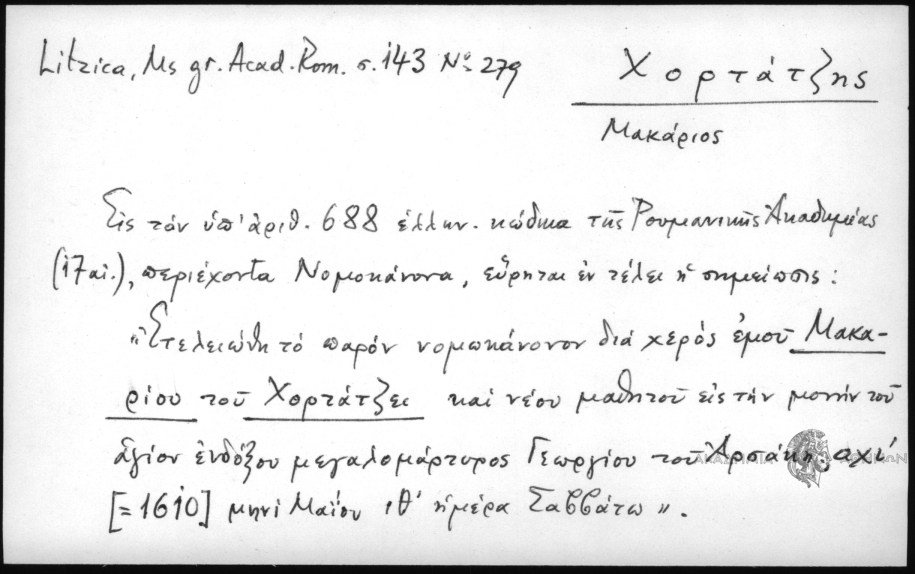 Litzica, Ms gr. Acad. Rom. σ. 143 Νο 279
Χορτάτζης
Μακάριος
Εἰς τόν ὑπ' ἀριθ. 688 ἑλλην. κώδικα τῆς Ρουμανικῆς Ἀκαδημίας
(17 αἰ.), περιέχοντα Νομοκάνονα, εὕρηται ἐν τέλει ἡ σημείωσις:
"Ἐτελειώθη τό παρόν νομωκάνονον διά χερός ἐμοῦ Μακα-
ρίου τοῦ Χορτάτζει καί νέου μαθητοῦ εἰς τήν μονήν τοῦ
ἁγίου ἐνδόξου μεγαλομάρτυρος Γεωργίου τοῦ Ἀρσάκη, αχί
[=1610] μηνί Μαΐου ιθ' ἡμέρα Σαββάτω".